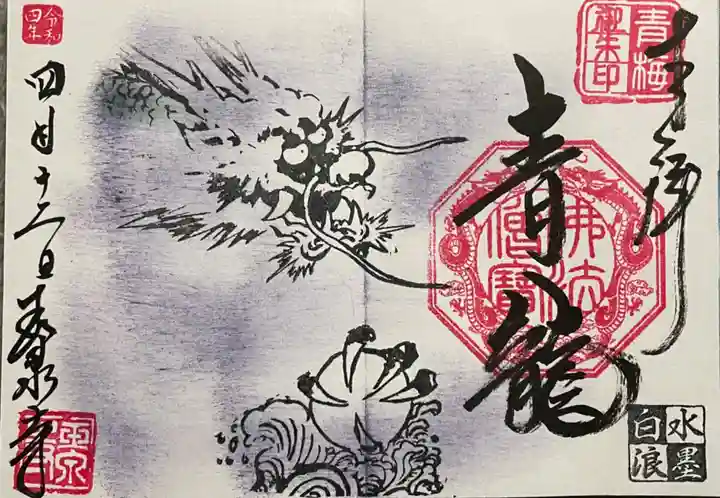 奉拝
青梅
御朱印
青龍
佛法
僧寶
水墨
白浪
令和
四年
四月十二日